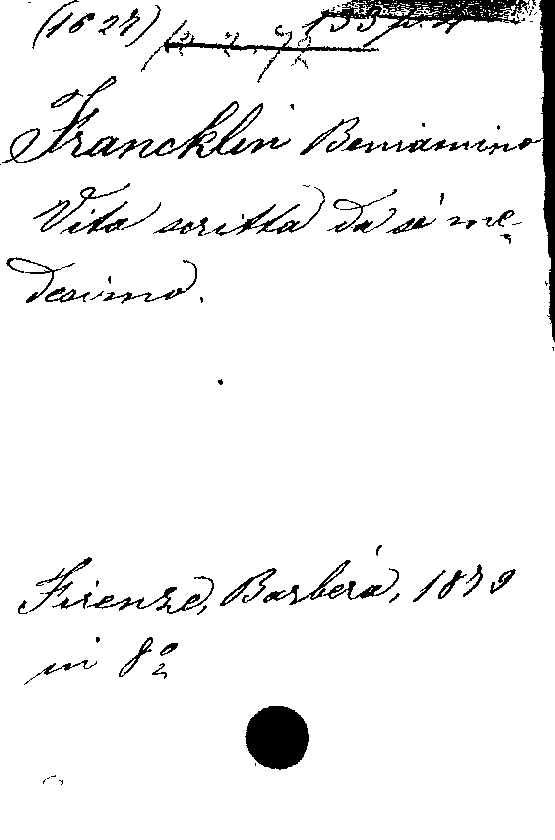 (1627)
Francklin Beniamino
Vita scritta da sè me-
desimo.
Firenze, Barbèra, 1879
in 8º